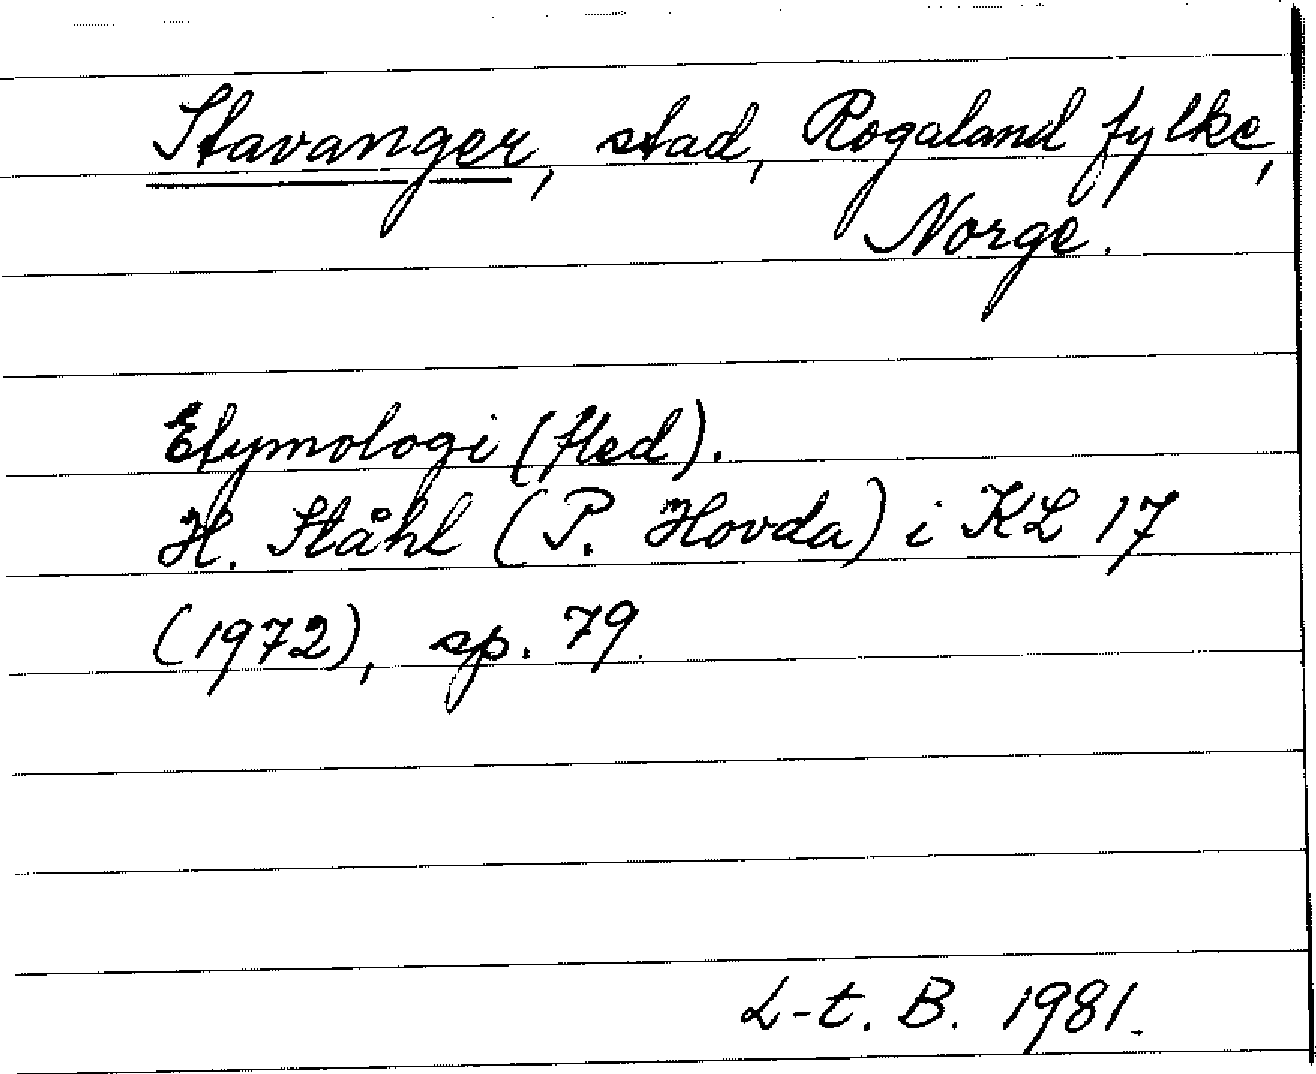 Stavanger, stad, Rogaland fylke,
Norge.
Etymologi (fled).
H. Ståhl (P. Hovda) i KL 17
(1972), sp. 79.
L-t. B. 1981.